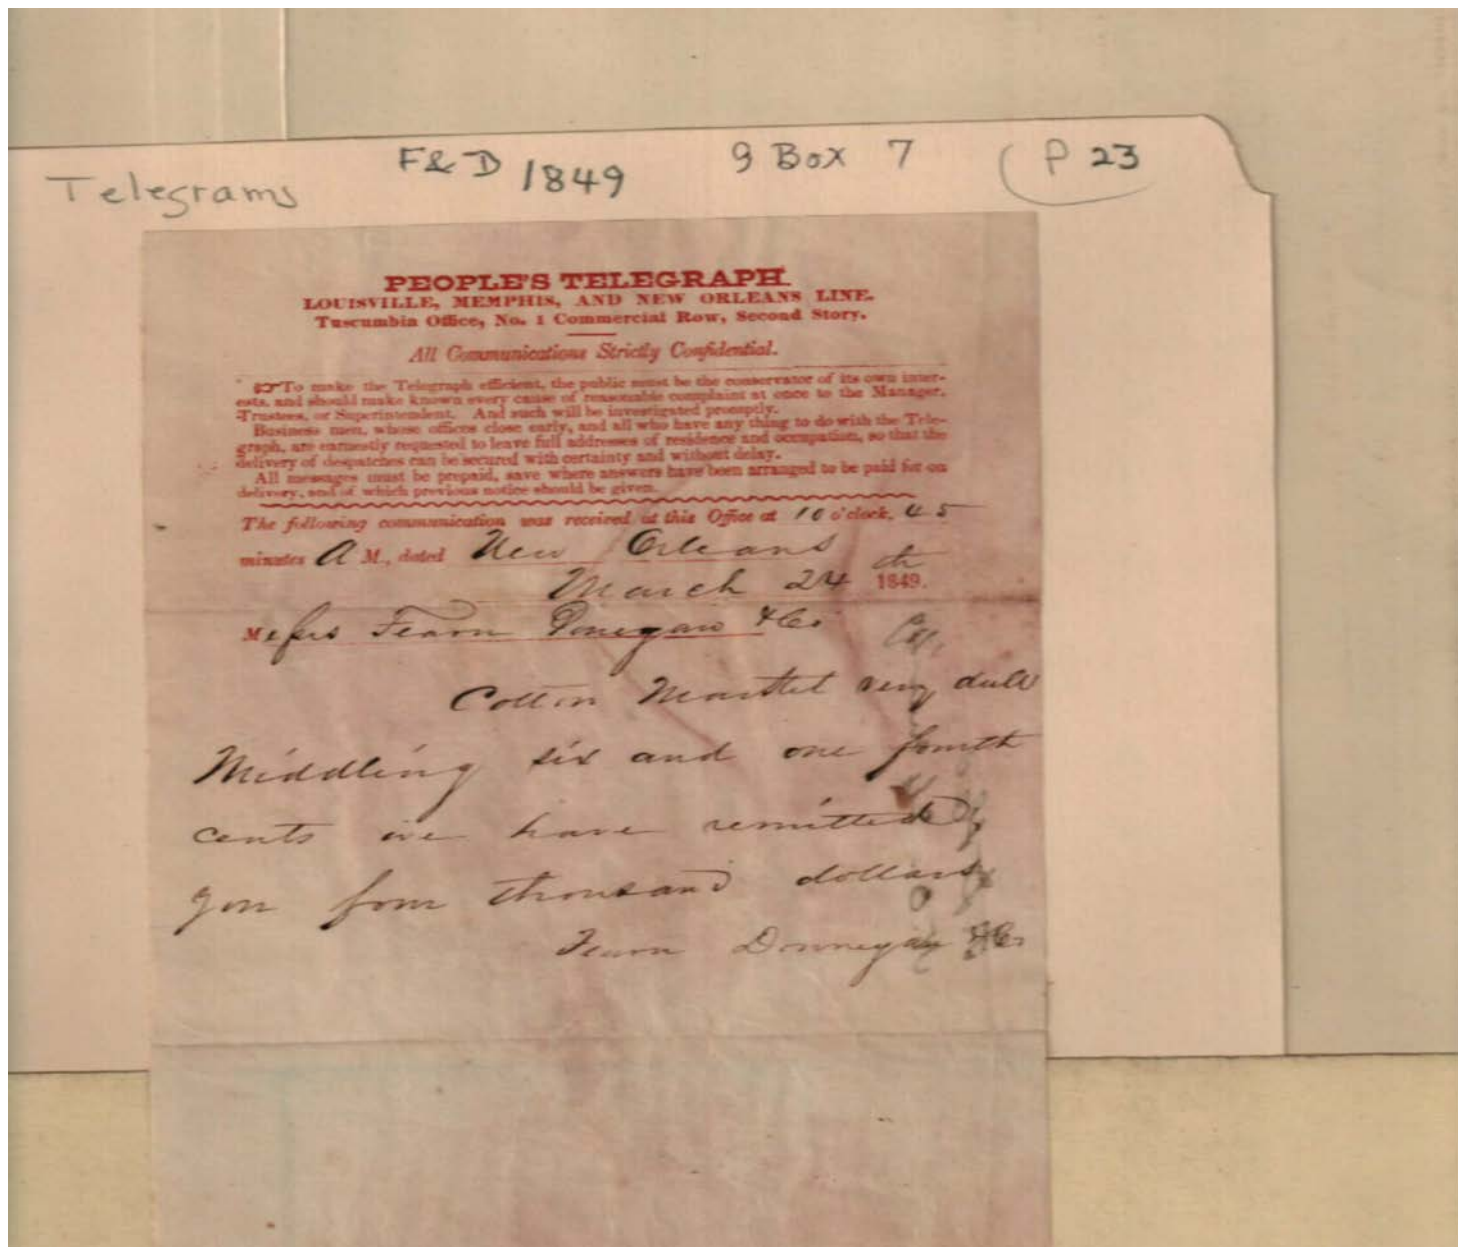 Telegrams F&D 1849 9 Box 7 P 23
PEOPLE'S TELEGRAPH.
LOUISVILLE, MEMPHIS, AND NEW ORLEANS LINE.
Tuscumbia Office, No. 1 Commercial Row, Second Story.
All Communications Strictly Confidential.
☞To make the Telegraph efficient, the public must be the conservator of its own inter-
ests, and should make known every cause of reasonable complaint at once to the Manager,
Trustees, or Superintendent. And such will be investigated promptly.
Business men, whose offices close early, and all who have any thing to do with the Tele-
graph, are earnestly requested to leave full addresses of residence and occupation, so that the
delivery of despatches can be secured with certainty and without delay.
All messages must be prepaid, save where answers have been arranged to be paid for on
delivery, and of which previous notice should be given.
The following communication was received at this Office at 10 o'clock, 45
minutes A M., dated New Orleans
March 24th 1849.
Messrs Fearn Donegan & Co
Cotton Market very dull
Middling six and one fourth
cents we have remitted
you four thousand dollars
Fearn Donnegan & Co